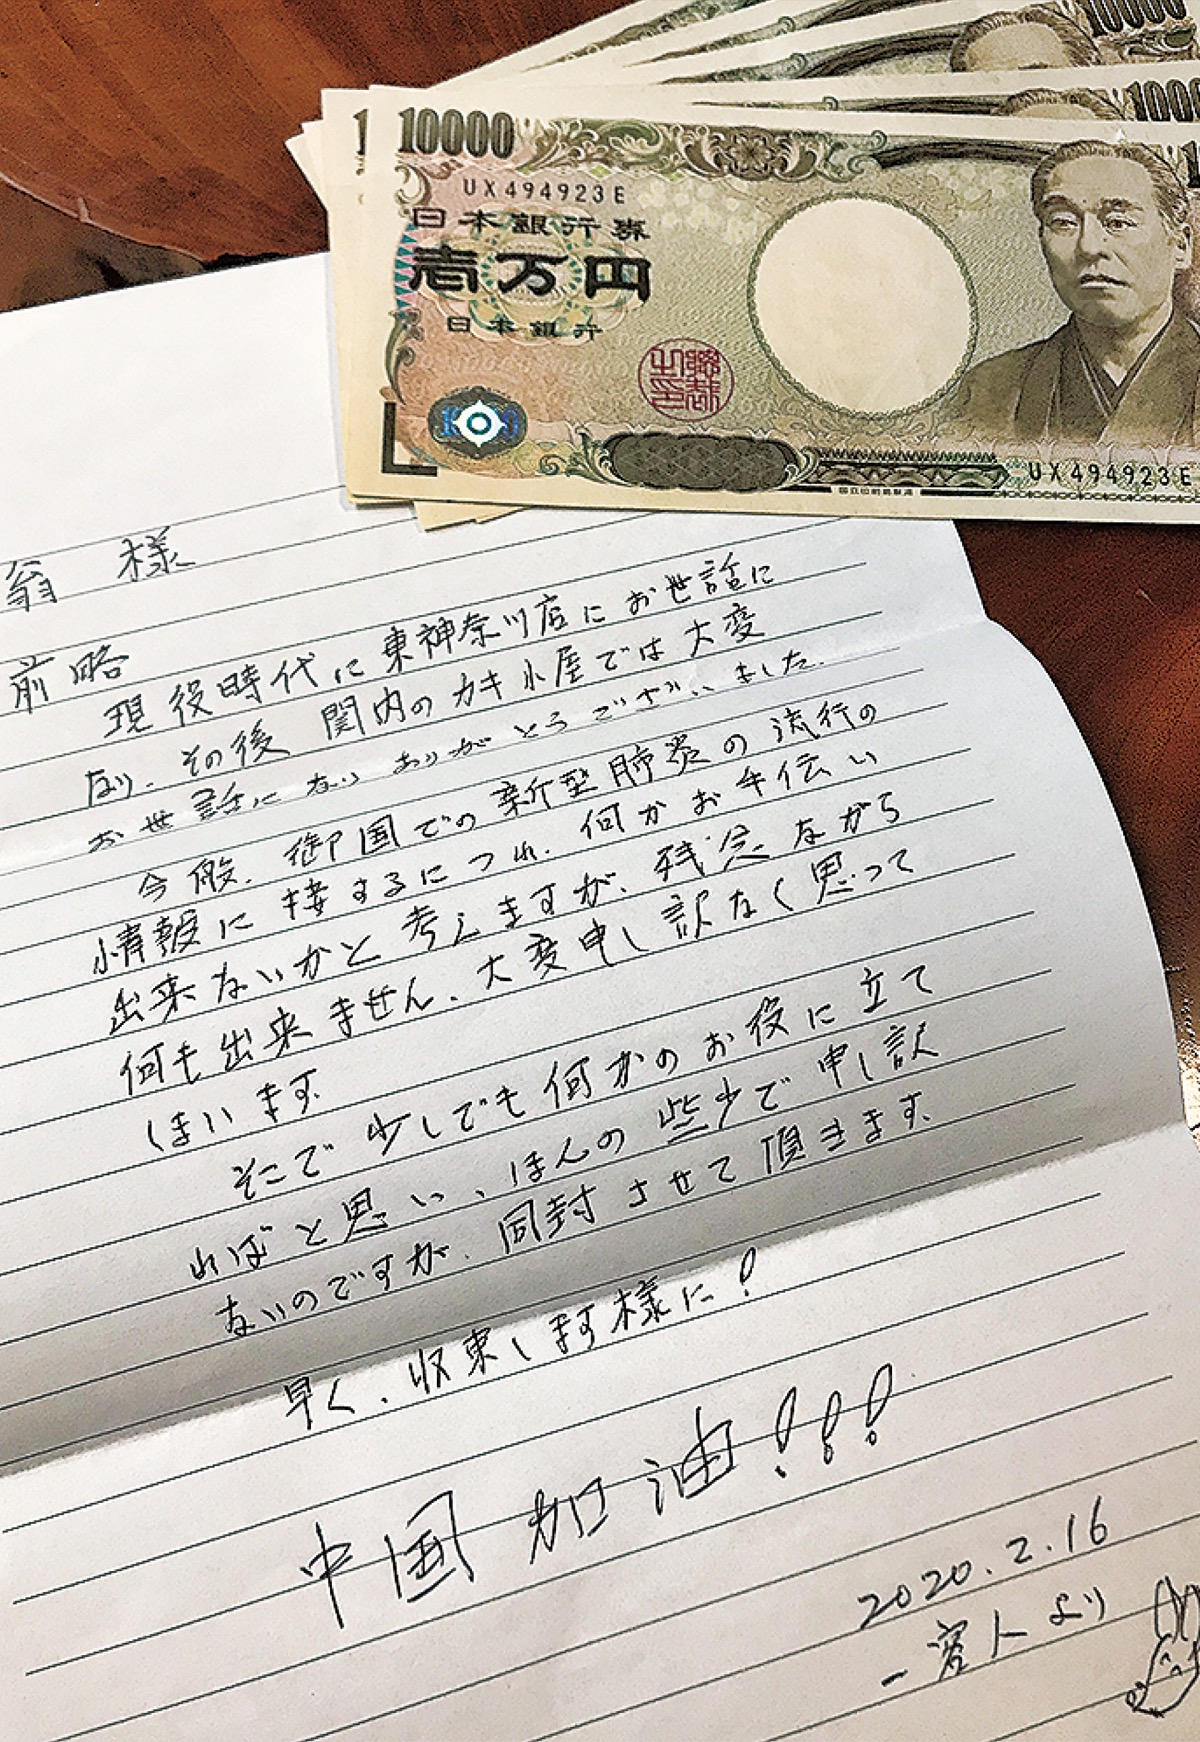 10000
10000
1
10000
UX494923E
日本銀行券
壱万円
日本銀行
UX494923E
翁 様
前略
現役時代に東神奈川店にお世話に
なり、その後 関内のカキ小屋では大変
お世話になりありがとうございました。
今般、御国での新型肺炎の流行の
情報に接するにつれ、何かお手伝い
出来ないかと考えますが、残念ながら
何も出来ません。大変申し訳なく思って
しまいます。
そこで少しでも何かのお役に立て
ればと思い、ほんの些少で申し訳
ないのですが、同封させて頂きます。
早く、収束します様に！
中国 加油！！！
2020.2.16
一客人より